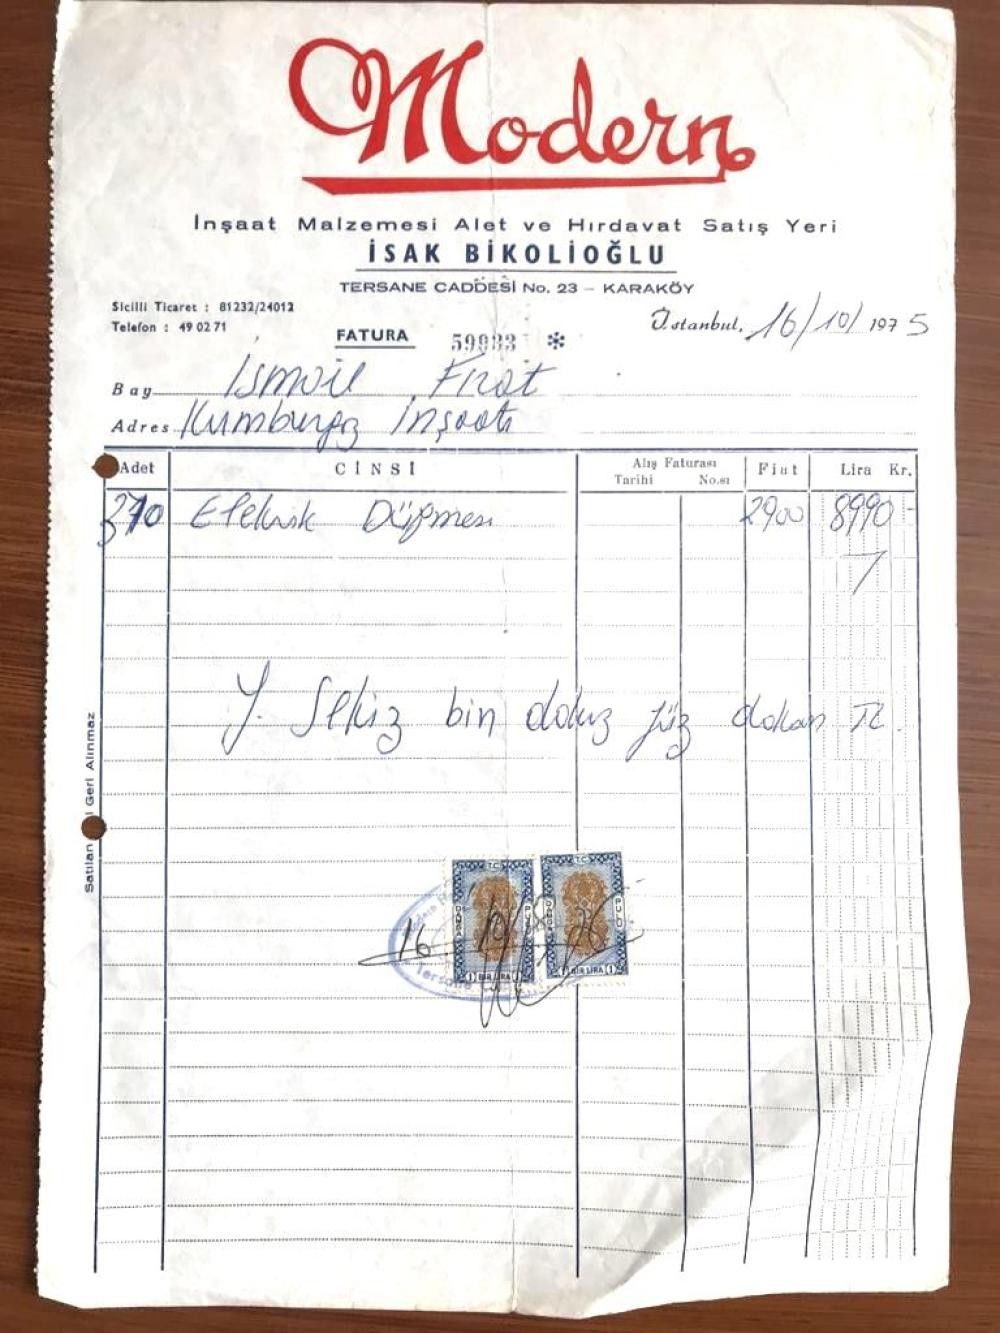 Modern
İnşaat Malzemesi Alet ve Hırdavat Satış Yeri
İSAK BİKOLİOĞLU
TERSANE CADDESİ No. 23 – KARAKÖY
Sicilli Ticaret : 81232/24012
Telefon : 49 02 71
FATURA 59983 *
İstanbul, 16/10/1975
Bay İsmail Fırat
Adres Kumburgaz İnşaatı
Adet CİNSİ Alış Faturası Tarihi No.sı Fiat Lira Kr.
310 Elektrik Düğmesi 2900 8990 -
Y. Sekiz bin dokuz yüz doksan TL.
Satılan Geri Alınmaz
T.C. DAMGA PULU 1 BİR LİRA 1
T.C. DAMGA PULU 1 BİR LİRA 1
16